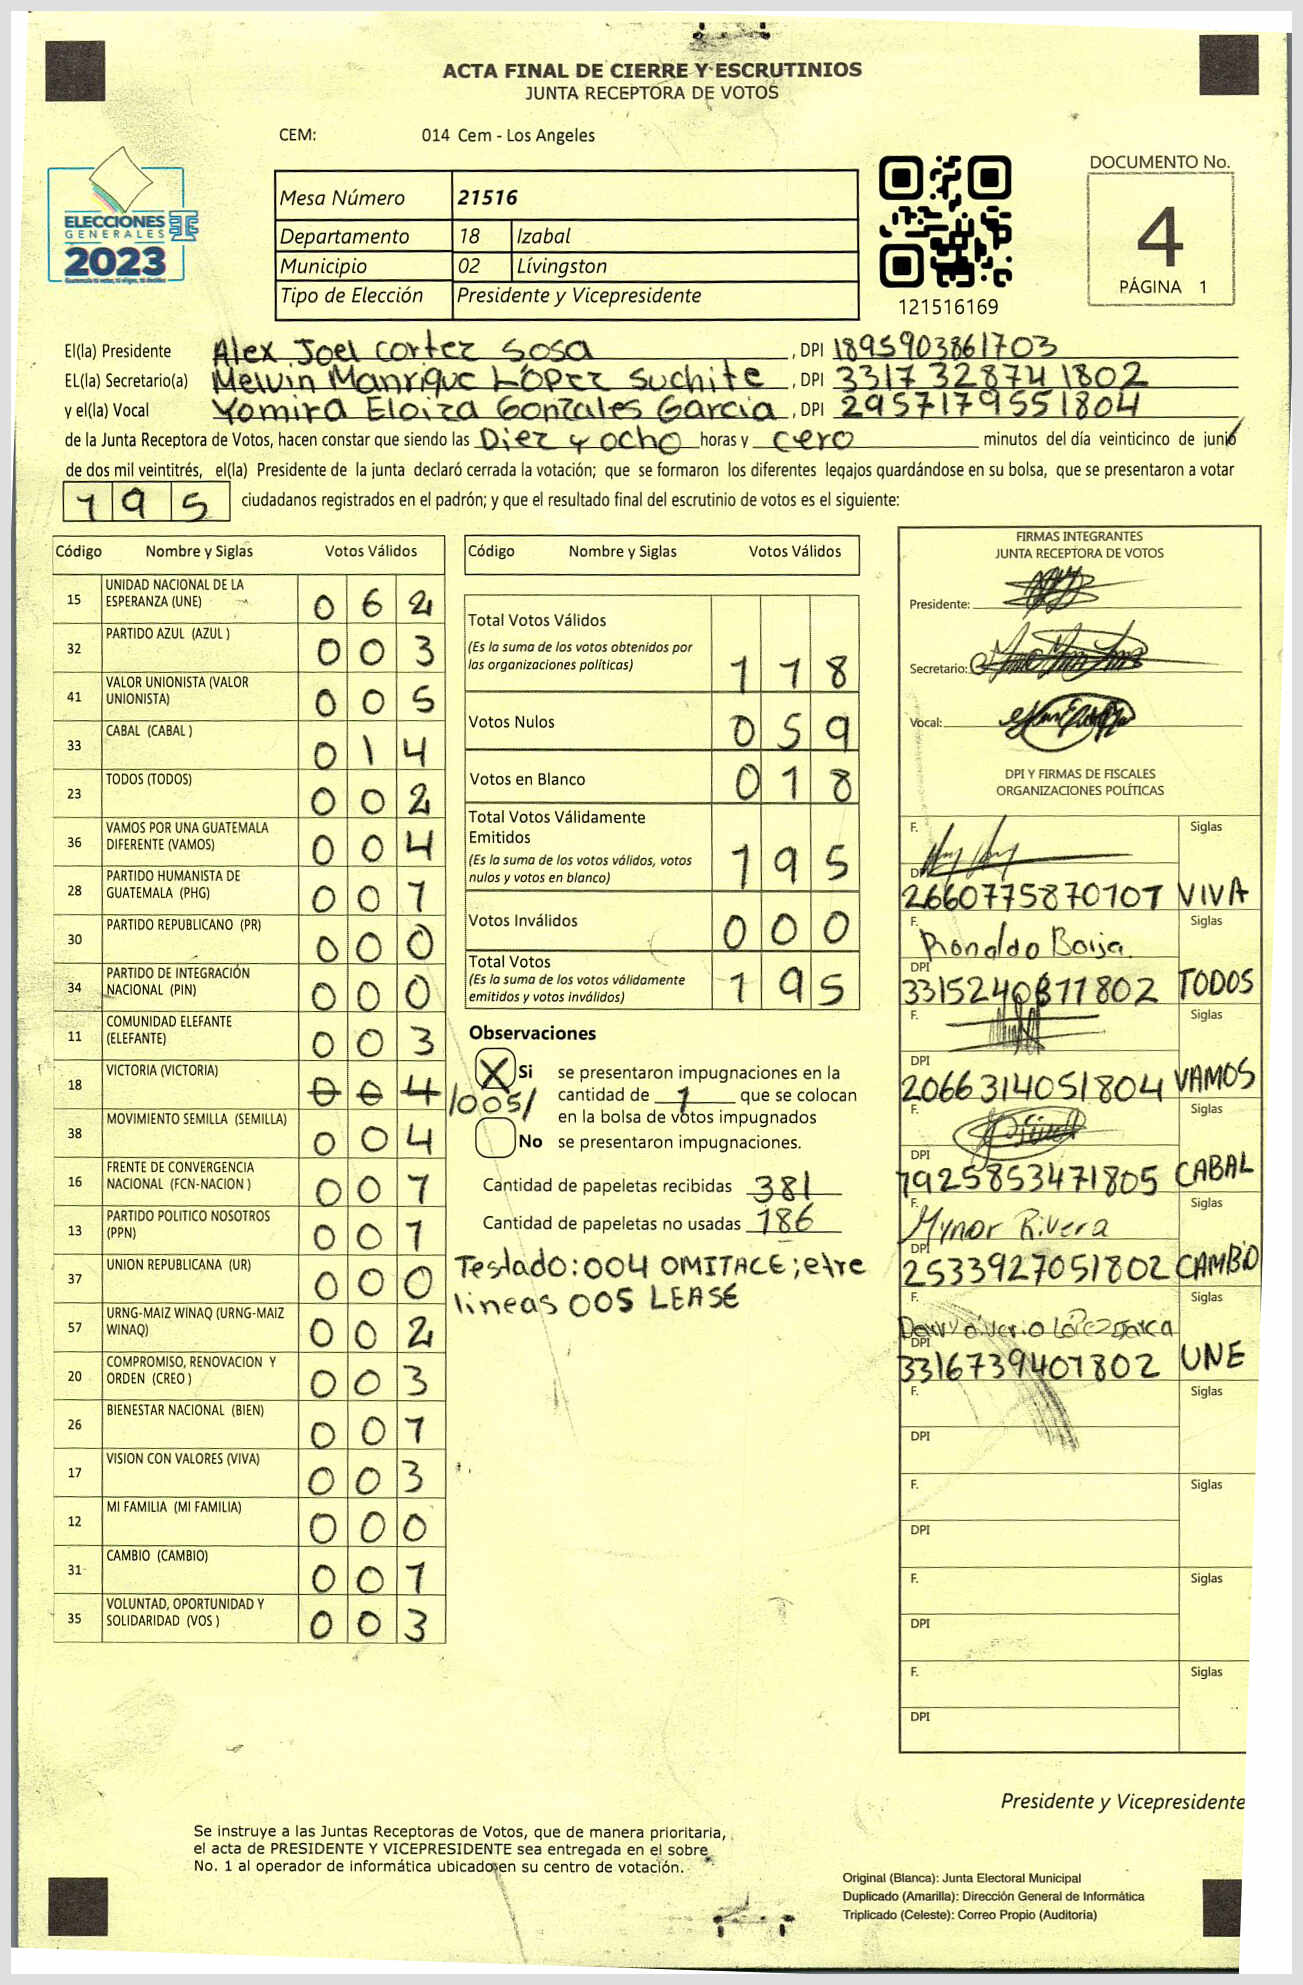 ACTA FINAL DE CIERRE Y ESCRUTINIOS
JUNTA RECEPTORA DE VOTOS
CEM: 014 Cem - Los Angeles
ELECCIONES
GENERALES
2023
Mesa Número 21516
Departamento 18 Izabal
Municipio 02 Lívingston
Tipo de Elección Presidente y Vicepresidente
121516169
DOCUMENTO No.
4
PÁGINA 1
El(la) Presidente Alex Joel Cortez Sosa, DPI 1895903861703
EL(la) Secretario(a) Melvin Manrique López Suchite, DPI 3317328741802
y el(la) Vocal Yomira Eloiza Gonzales Garcia, DPI 2957179551804
de la Junta Receptora de Votos, hacen constar que siendo las Diez y ocho horas y cero minutos del día veinticinco de junio
de dos mil veintitrés, el(la) Presidente de la junta declaró cerrada la votación; que se formaron los diferentes legajos guardándose en su bolsa, que se presentaron a votar
195 ciudadanos registrados en el padrón; y que el resultado final del escrutinio de votos es el siguiente:
Código Nombre y Siglas Votos Válidos
15 UNIDAD NACIONAL DE LA ESPERANZA (UNE) 0 6 2
32 PARTIDO AZUL (AZUL ) 0 0 3
41 VALOR UNIONISTA (VALOR UNIONISTA) 0 0 5
33 CABAL (CABAL ) 0 1 4
23 TODOS (TODOS) 0 0 2
36 VAMOS POR UNA GUATEMALA DIFERENTE (VAMOS) 0 0 4
28 PARTIDO HUMANISTA DE GUATEMALA (PHG) 0 0 1
30 PARTIDO REPUBLICANO (PR) 0 0 0
34 PARTIDO DE INTEGRACIÓN NACIONAL (PIN) 0 0 0
11 COMUNIDAD ELEFANTE (ELEFANTE) 0 0 3
18 VICTORIA (VICTORIA) 0 0 4 /005/
38 MOVIMIENTO SEMILLA (SEMILLA) 0 0 4
16 FRENTE DE CONVERGENCIA NACIONAL (FCN-NACION ) 0 0 1
13 PARTIDO POLITICO NOSOTROS (PPN) 0 0 1
37 UNION REPUBLICANA (UR) 0 0 0
57 URNG-MAIZ WINAQ (URNG-MAIZ WINAQ) 0 0 2
20 COMPROMISO, RENOVACION Y ORDEN (CREO ) 0 0 3
26 BIENESTAR NACIONAL (BIEN) 0 0 1
17 VISION CON VALORES (VIVA) 0 0 3
12 MI FAMILIA (MI FAMILIA) 0 0 0
31 CAMBIO (CAMBIO) 0 0 1
35 VOLUNTAD, OPORTUNIDAD Y SOLIDARIDAD (VOS ) 0 0 3
Código Nombre y Siglas Votos Válidos
Total Votos Válidos
(Es la suma de los votos obtenidos por
las organizaciones políticas) 1 1 8
Votos Nulos 0 5 9
Votos en Blanco 0 1 8
Total Votos Válidamente
Emitidos
(Es la suma de los votos válidos, votos
nulos y votos en blanco) 1 9 5
Votos Inválidos 0 0 0
Total Votos
(Es la suma de los votos válidamente
emitidos y votos inválidos) 1 9 5
Observaciones
X Si se presentaron impugnaciones en la
cantidad de 1 que se colocan
en la bolsa de votos impugnados
No se presentaron impugnaciones.
Cantidad de papeletas recibidas 381
Cantidad de papeletas no usadas 186
Testado: 004 OMITACE; etre
lineas 005 LEASE
FIRMAS INTEGRANTES
JUNTA RECEPTORA DE VOTOS
Presidente:
Secretario:
Vocal:
DPI Y FIRMAS DE FISCALES
ORGANIZACIONES POLÍTICAS
F. Siglas
DPI 2660775870101 VIVA
F. Ronaldo Borja. Siglas
DPI TODOS
F. Siglas
DPI 2066314051804 VAMOS
F. Siglas
DPI 1925853471805 CABAL
F. Mynor Rivera Siglas
DPI 2533927051802 CAMBIO
F. Siglas
DPI 3316739401802 UNE
F. Siglas
DPI
F. Siglas
DPI
F. Siglas
DPI
F. Siglas
DPI
Presidente y Vicepresidente
Se instruye a las Juntas Receptoras de Votos, que de manera prioritaria,
el acta de PRESIDENTE Y VICEPRESIDENTE sea entregada en el sobre
No. 1 al operador de informática ubicado en su centro de votación.
Original (Blanca): Junta Electoral Municipal
Duplicado (Amarilla): Dirección General de Informática
Triplicado (Celeste): Correo Propio (Auditoría)